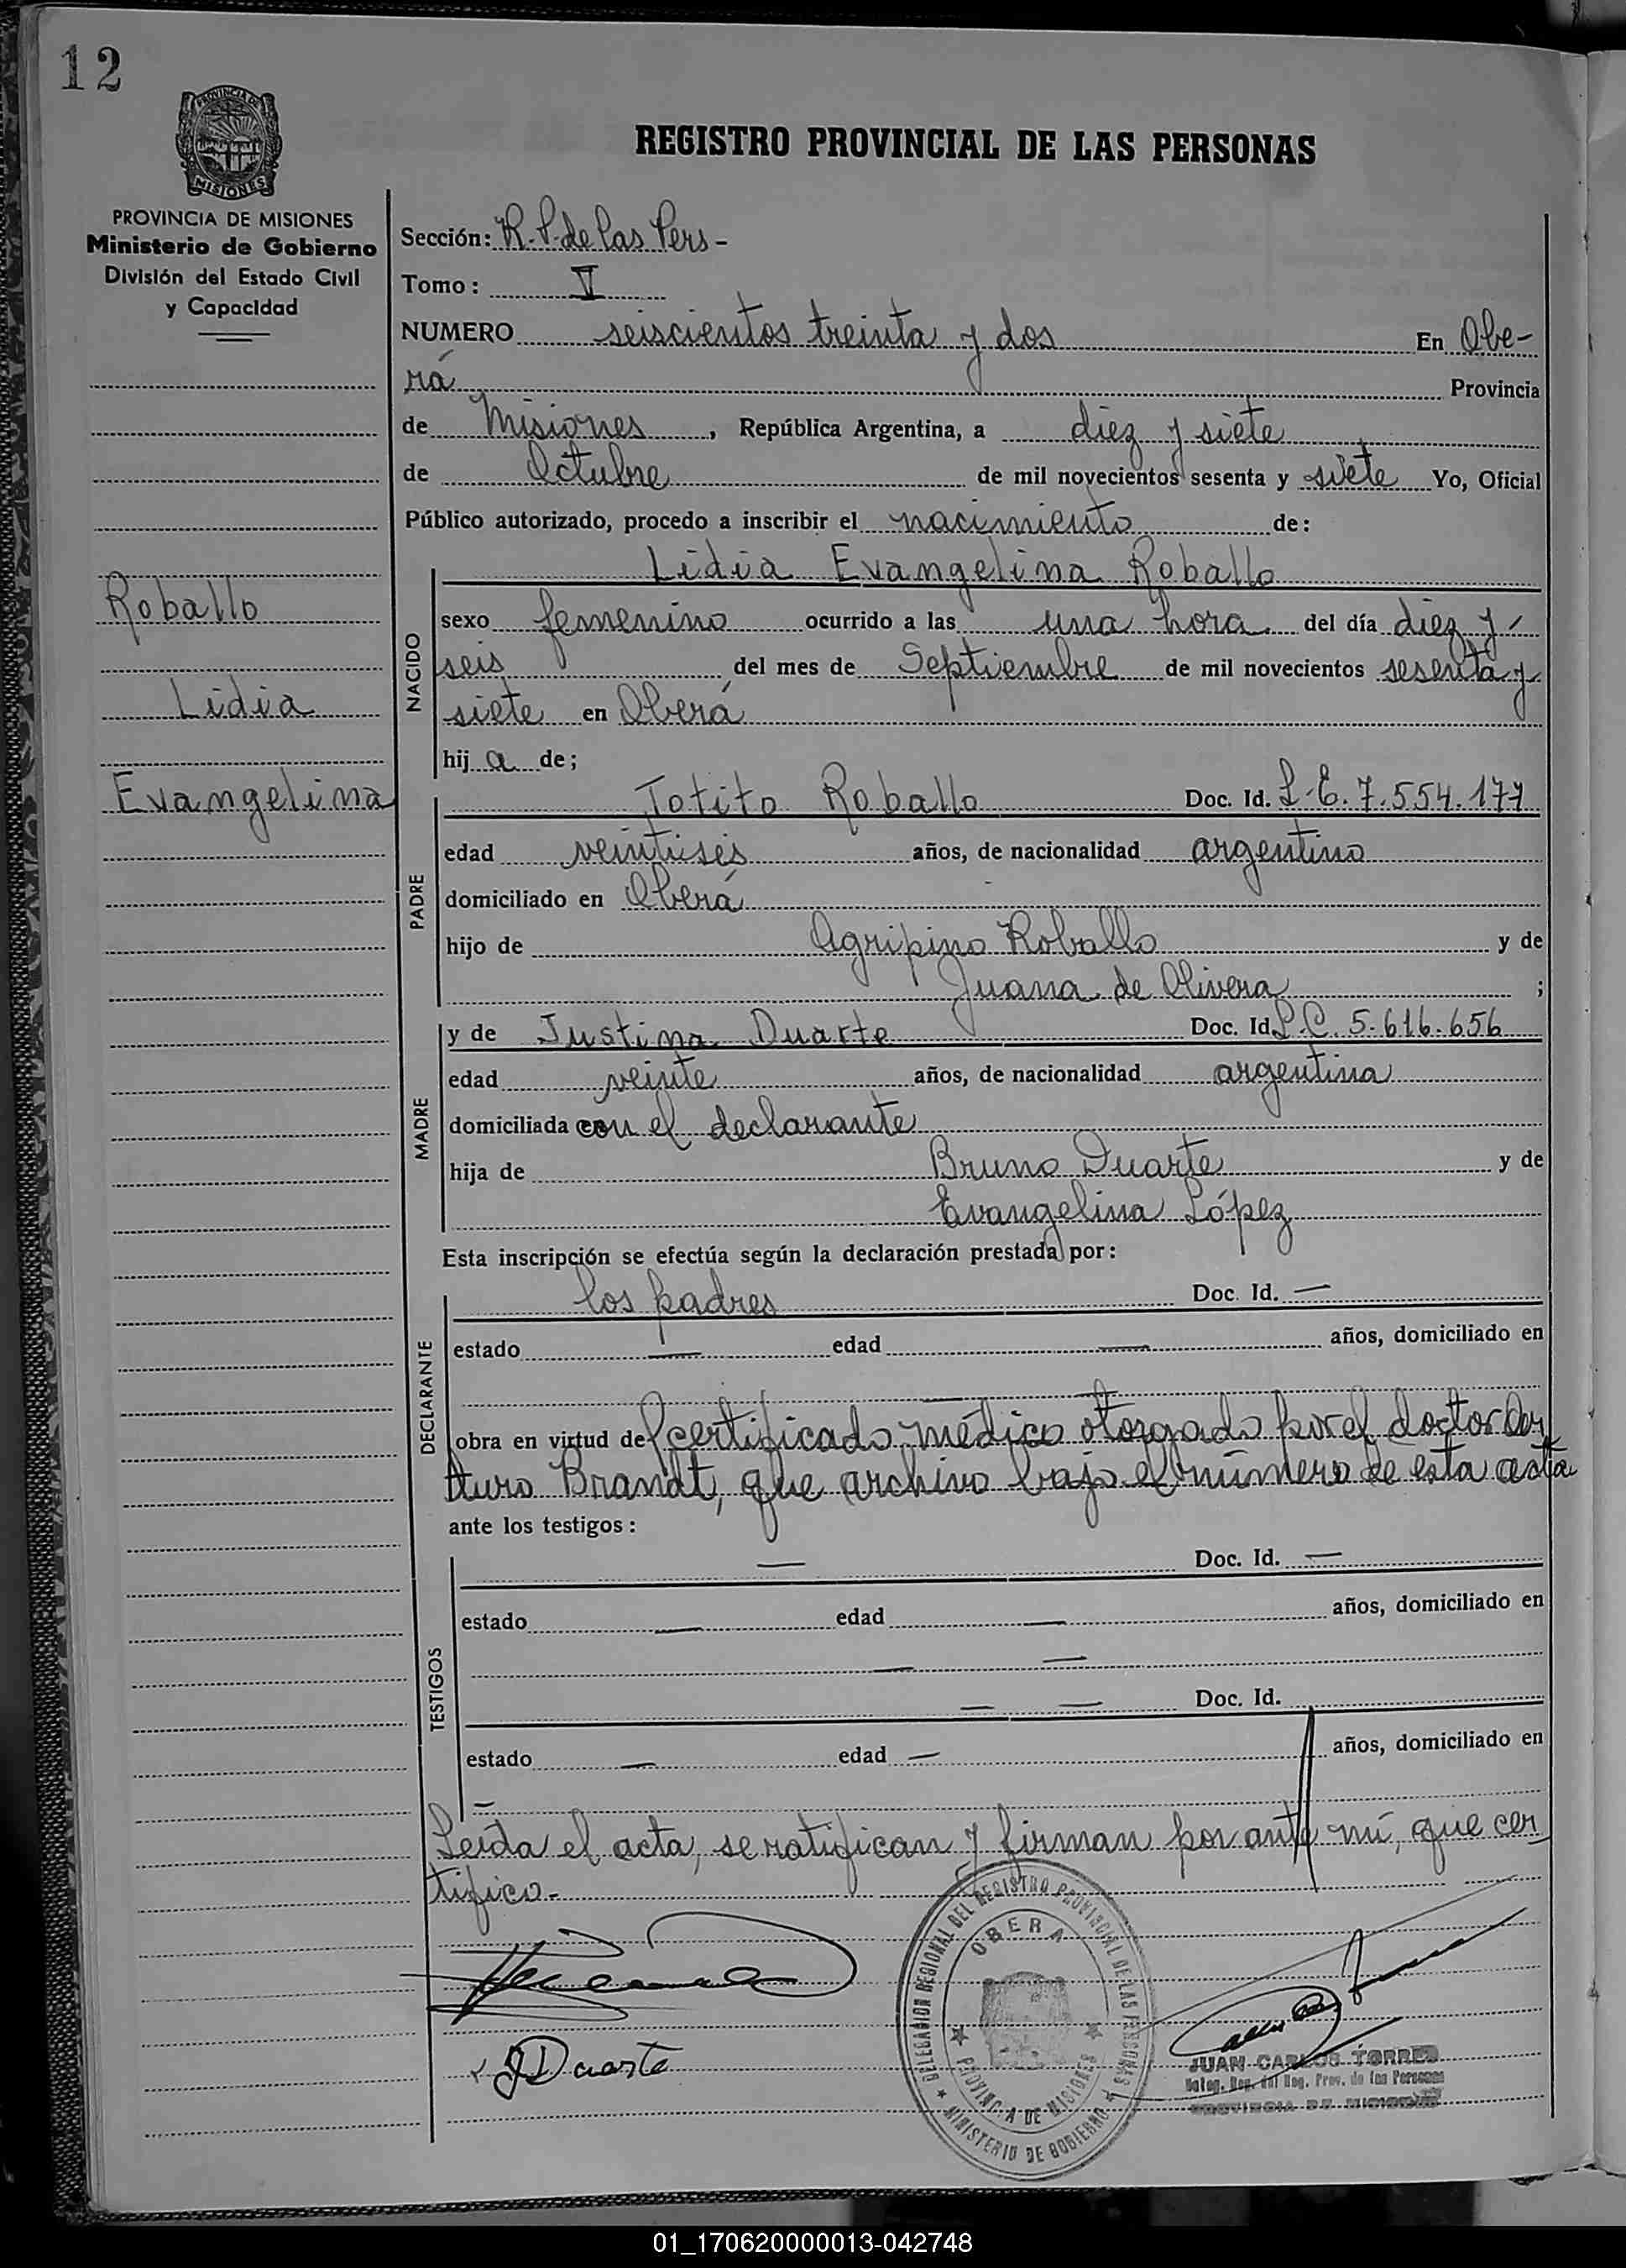 12
PROVINCIA DE
MISIONES
PROVINCIA DE MISIONES
Ministerio de Gobierno
División del Estado Civil
y Capacidad
Roballo
Lidia
Evangelina
REGISTRO PROVINCIAL DE LAS PERSONAS
Sección: R. P. de las Pers -
Tomo: V
NUMERO seiscientos treinta y dos En Obe-
rá Provincia
de Misiones, República Argentina, a diez y siete
de Octubre de mil novecientos sesenta y siete Yo, Oficial
Público autorizado, procedo a inscribir el nacimiento de:
NACIDO
Lidia Evangelina Roballo
sexo femenino ocurrido a las una hora del día diez y
seis del mes de Septiembre de mil novecientos sesenta y
siete en Oberá
hij a de;
PADRE
Totito Roballo Doc. Id. L.E. 7.554.177
edad veintiseis años, de nacionalidad argentino
domiciliado en Oberá
hijo de Agripino Roballo y de
Juana de Olivera ;
MADRE
y de Justina Duarte Doc. Id. L.C. 5.616.656
edad veinte años, de nacionalidad argentina
domiciliada con el declarante
hija de Bruno Duarte y de
Evangelina López
Esta inscripción se efectúa según la declaración prestada por:
DECLARANTE
los padres Doc. Id. —
estado — edad — años, domiciliado en
—
obra en virtud del certificado médico otorgado por el doctor
Brandt, que archivo bajo el número de esta acta
ante los testigos:
TESTIGOS
— Doc. Id. —
estado — edad — años, domiciliado en
— —
— — Doc. Id.
estado — edad — años, domiciliado en
—
Leída el acta, se ratifican y firman por ante mí, que cer
tifico.-
J Duarte
DELEGACION REGIONAL DEL REGISTRO PROVINCIAL DE LAS PERSONAS
OBERA
PROVINCIA DE MISIONES
MINISTERIO DE GOBIERNO
JUAN CARLOS TORRES
Deleg. Reg. del Reg. Prov. de las Personas
PROVINCIA DE MISIONES
01_170620000013-042748